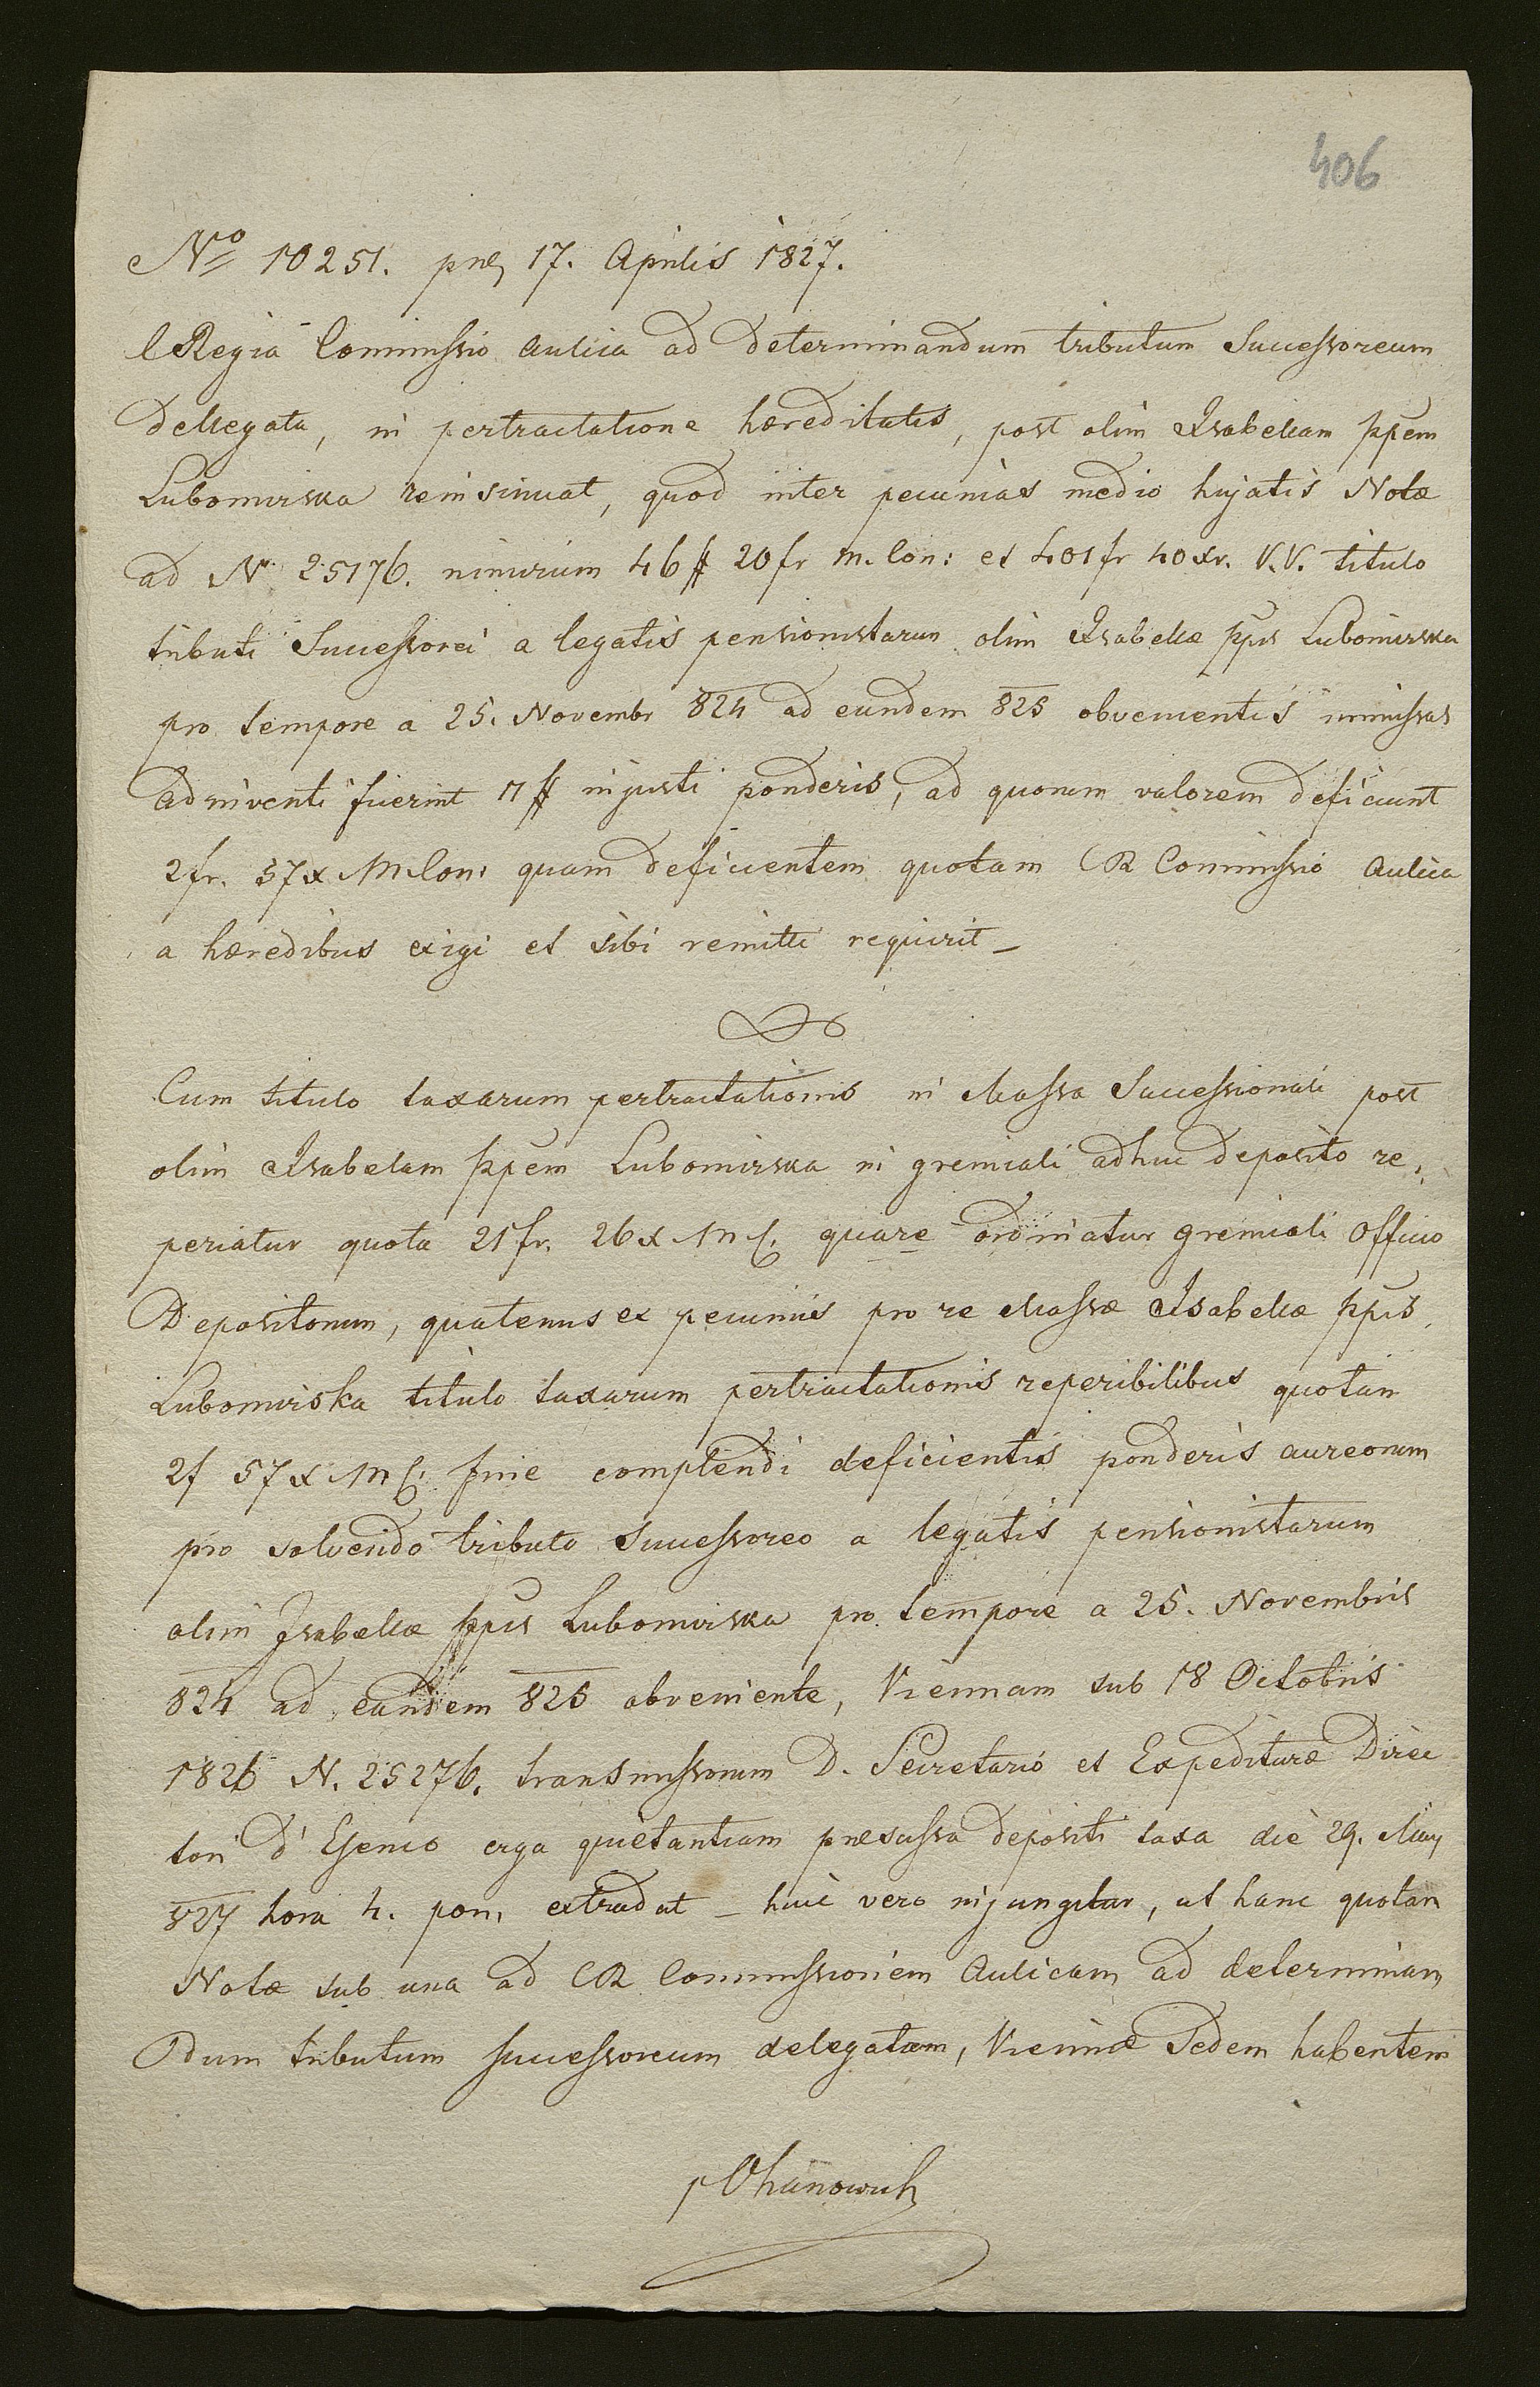 406
No 10251. pns 17. Aprilis 1827.
C Regia Commissio Aulica ad determinandum tributum Successoreum
dellegata, in pertractatione hæreditatis, post olim Isabellam ppem
Lubomirska reinsinuat, quod inter pecunias medio hujatis Notæ
ad N 25176. nimirum 46 # 20 fr M. Con: et 401 fr 40 xr. V.V. titulo
tributi Successorei a legatis pensionistarum olim Isabellæ ppis Lubomirska
pro tempore a 25. Novembr 824 ad eundem 825 obvenientis immissas
adinventi fuerint 17 # injusti ponderis, ad quorum valorem deficiunt
2 fr. 57 x M Con: quam deficientem quotam CR Commissio Aulica
a hæredibus exigi et sibi remitti requirit –
Cum titulo taxarum pertractationis in Massa Successionali post
olim Isabelam ppem Lubomirska in gremiali adhuc deposito re-
periatur quota 21 fr. 26 x M C. quare ordinatur gremiali Officio
Depositorum, quatenus ex pecuniis pro re Massæ Isabellæ ppis
Lubomirska titulo taxarum pertractationis reperibilibus quotam
2 f 57 x M C. fine complendi deficientis ponderis aureorum
pro solvendo tributo Successoreo a legatis pensionistarum
olim Isabellæ ppis Lubomirska pro tempore a 25. Novembris
824 ad eundem 825 obveniente, Viennam sub 18 Octobris
1826 N. 25276. transmissorum D. Secretario et Expedituræ Direc
tori d'Esenio erga quietantiam præsussa depositi taxa die 29. May
827 hora 4. pom. extradat – huic vero injungitur, ut hanc quotam
Notæ sub una ad CR Commissionem Aulicam ad determinan
dum tributum successoreum delegatam, Viennæ Sedem habentem